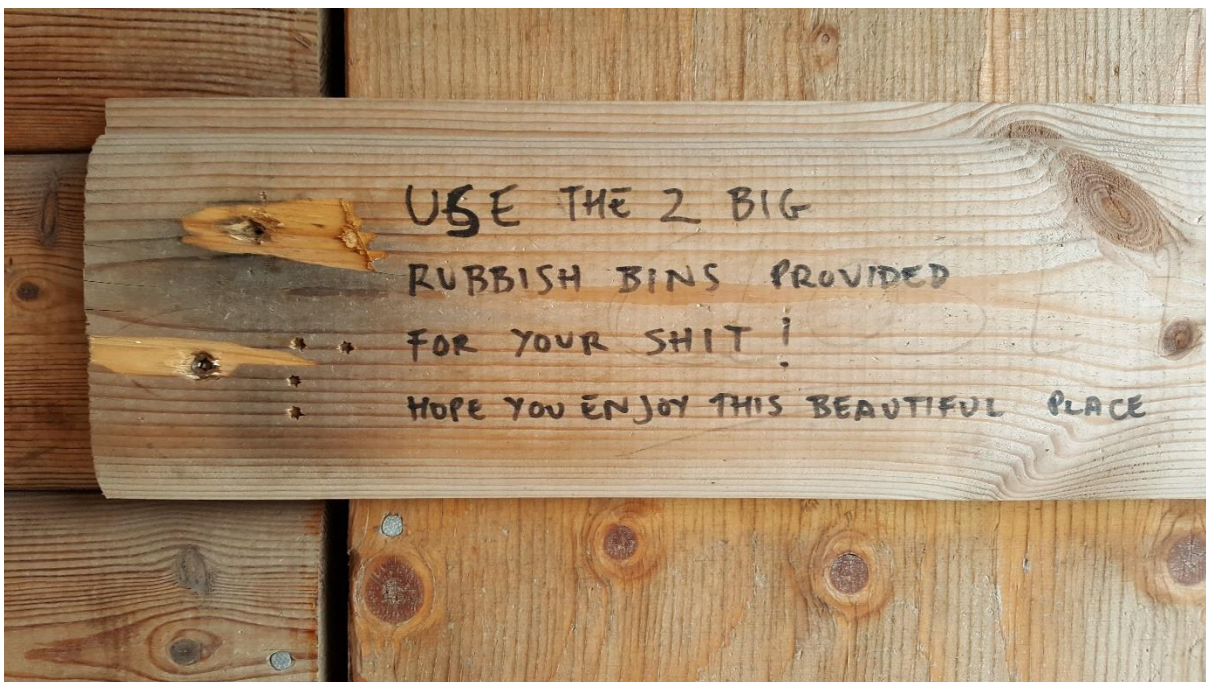 USE THE 2 BIG
RUBBISH BINS PROVIDED
FOR YOUR SHIT !
HOPE YOU ENJOY THIS BEAUTIFUL PLACE